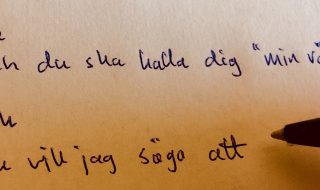 du ska kalla dig "min
vill jag säga att